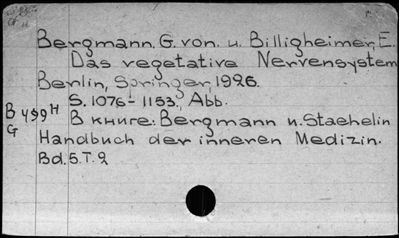 Bergmann, G. von. u. Billigheimer, E.
Das vegetative Nervensystem
Berlin, Springer, 1926.
S. 1076-1153., Abb.
В 499н
G
В книге: Bergmann u. Staehelin
Handbuch der inneren Medizin.
Bd. 5. T. 2